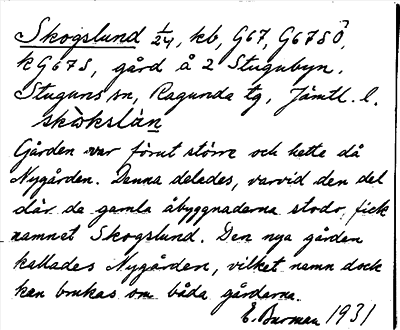 Skogslund 1/24, kb, G67, G67SÖ,
kG67S, gård å 2 Stugubyn,
Stuguns sn, Ragunda tg, Jämtl. l.
skòkslàn
Gården var förut större och hette då
Nygården. Denna delades, varvid den del
där de gamla åbyggnaderna stodo, fick
namnet Skogslund. Den nya gården
kallades Nygården, vilket namn dock
kan brukas om båda gårdarna.
E. Burman 1931